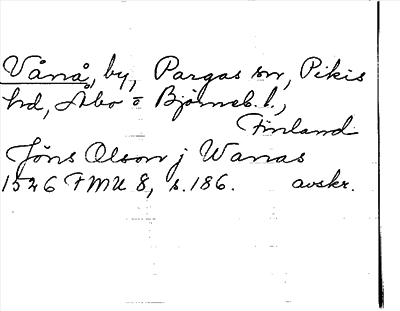 Vånå, by, Pargas sn, Pikis
hd, Åbo o Björneb. l.,
Finland
Jöns Olson j Wanas
1526 FMU 8, s. 186. avskr.